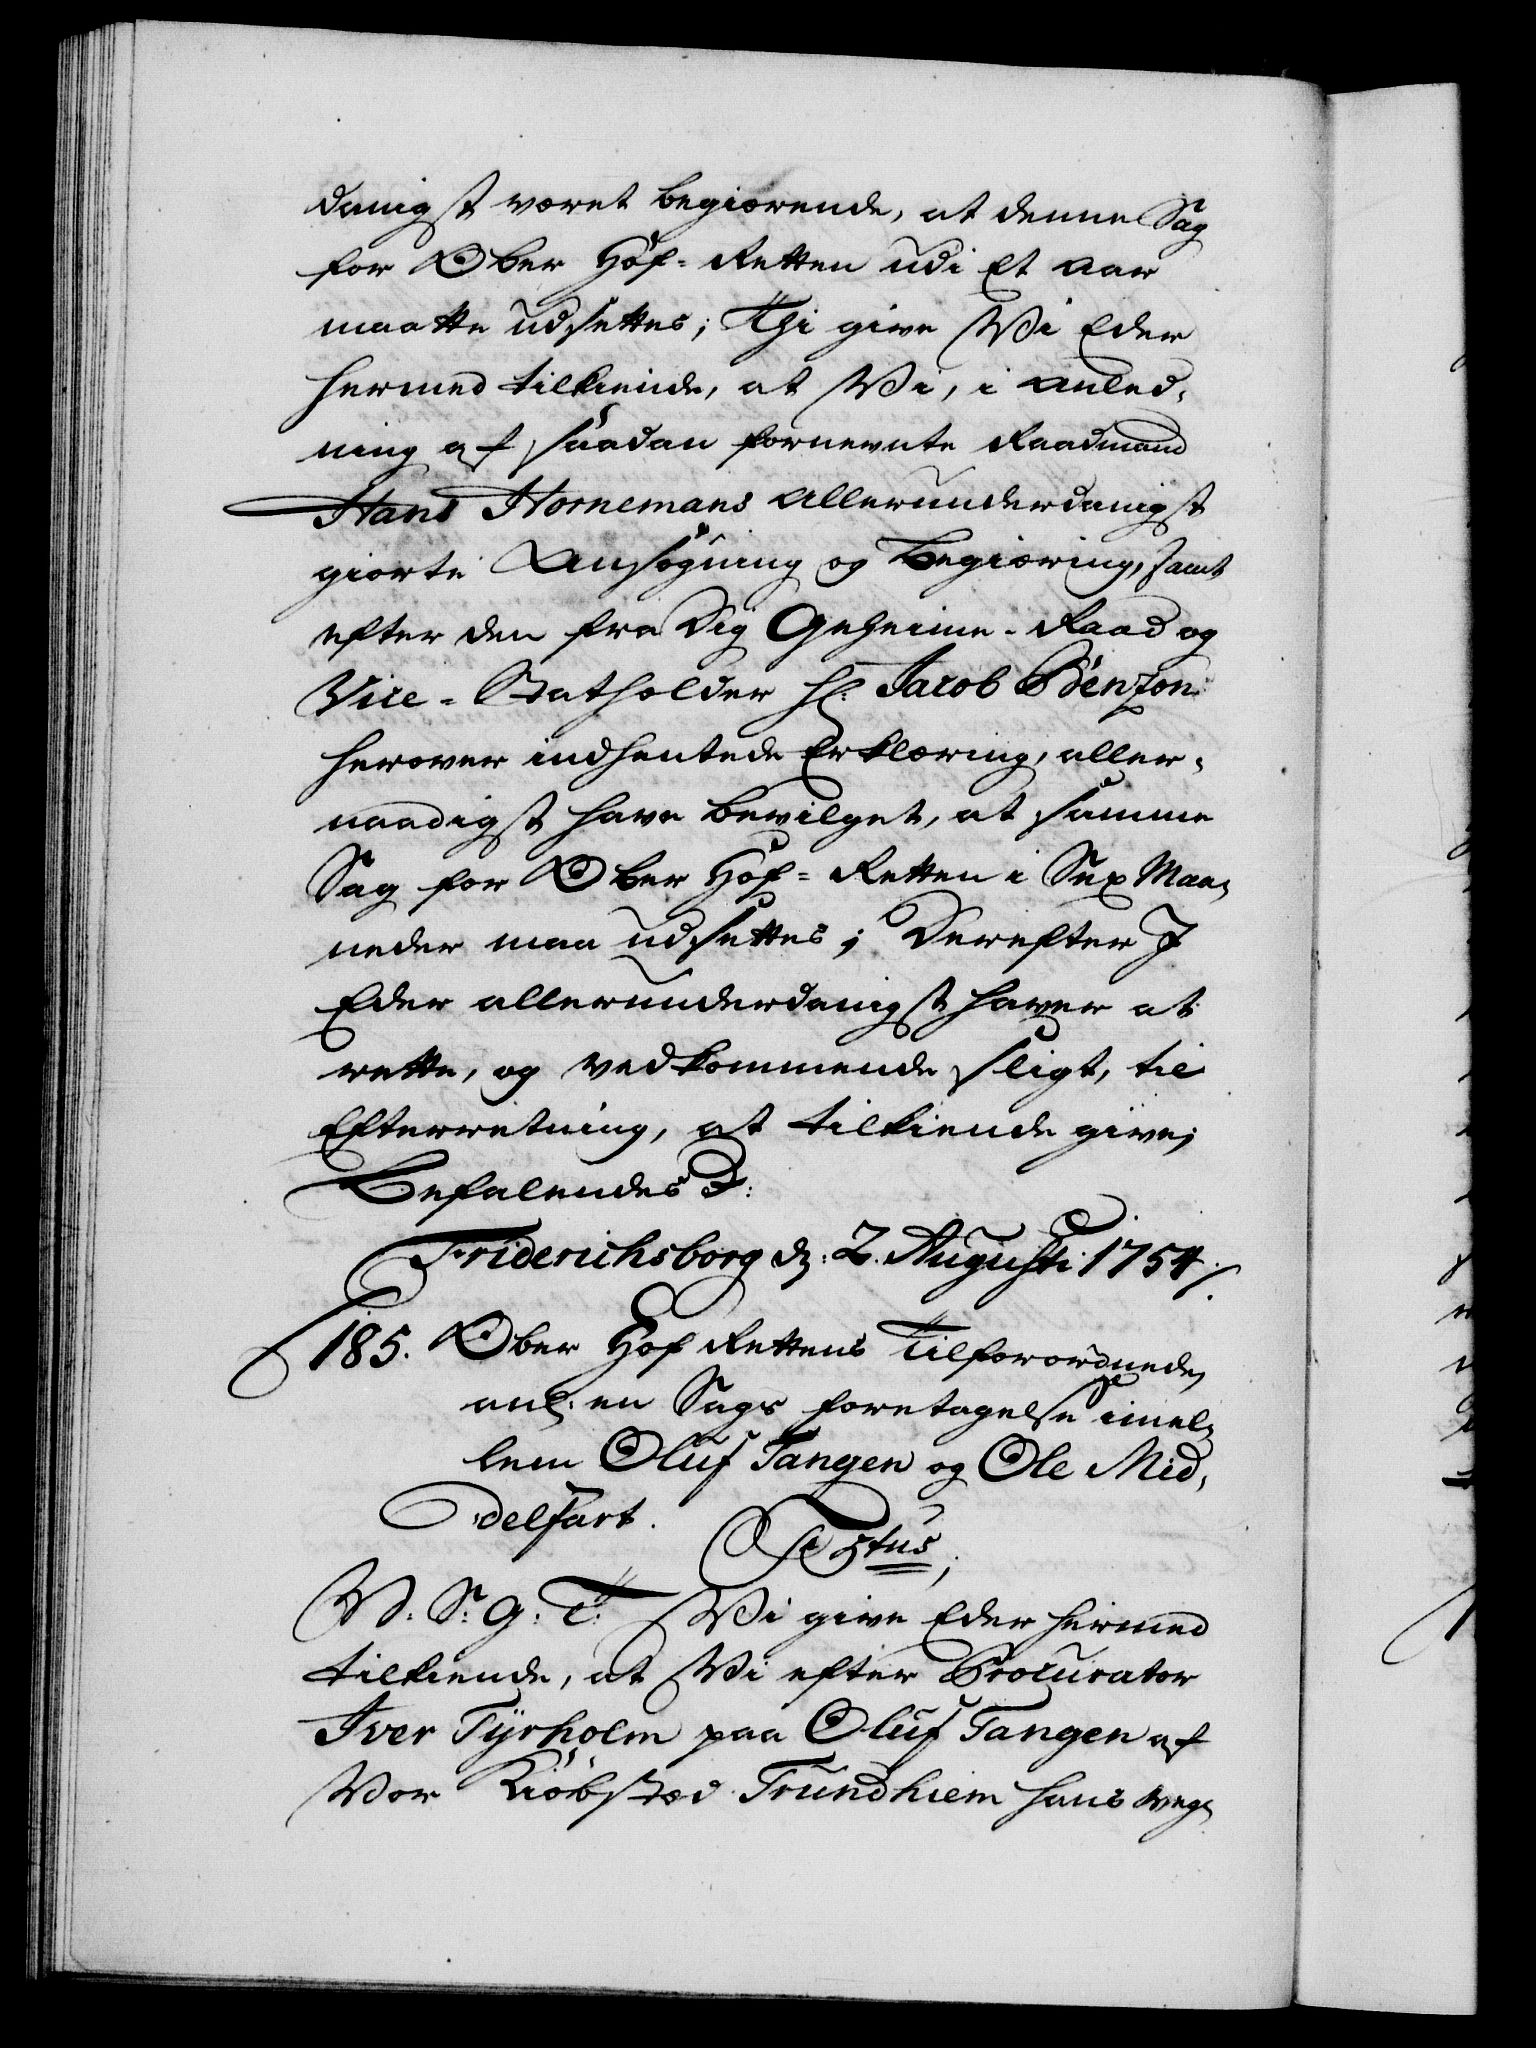 danigst været begiærende, at denne Sag
for Ober Hof-Retten udi Et Aar
maatte udsettes; Thi give Vi Eder
hermed tilkiende, at Vi, i anled-
ning af saadan fornevnte Raadmand
Hans Hornemans allerunderdanigst
giorte Ansøgning og Begiæring, samt
efter den fra Dig Geheime-Raad og
Vice-Statholder Hr: Jacob Benzon
herover indhentede Erklæring, aller-
naadigst have bevilget, at samme
Sag for Ober Hof-Retten i Sex Maa-
neder maa udsettes; Derefter I
Eder allerunderdanigst haver at
rette, og vedkommende sligt, til
Efterretning, at tilkiende give;
Befalendes D:
Friderichsborg d: 2. Augusti 1754./.
185. Ober Hof Rettens Tilforordnede,
anl: en Sags foretagelse imel-
lem Oluf Tangen og Ole Mid-
delfart.
F 5tus;
V: S: G: T: Vi give Eder hermed
tilkiende, at Vi efter Procurator
Iver Tyrholm paa Oluf Tangen af
Vor Kiøbstæd Trundhiem hans veg-